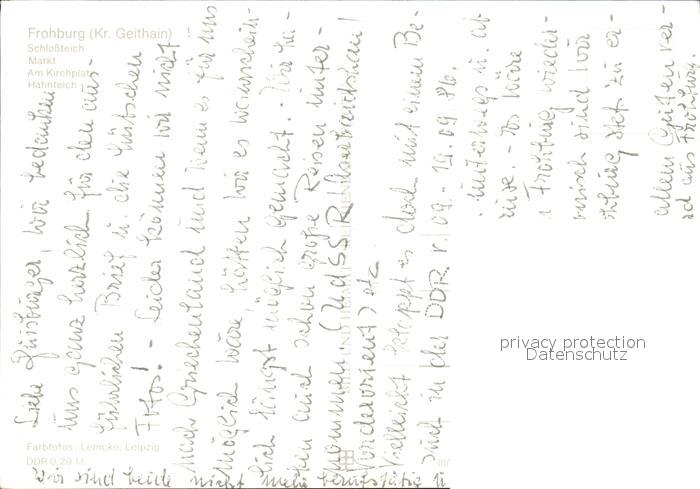 Frohburg (Kr. Geithain)
Schloßteich
Markt
Am Kirchplatz
Hahnteich
Liebe Duisburger, wir bedanken
uns ganz herzlich für den aus-
führlichen Brief u. die hübschen
Fotos! - Leider können wir nicht
nach Griechenland und wenn es für uns
möglich wäre, hätten wir es wahrschein-
lich längst möglich gemacht. - Wir ha-
ben auch schon große Reisen unter-
nommen. (UdSSR
Vorderorient) etc
Vielleicht klappt es doch mit einem Be-
such in der DDR. v. 09. - 19.09.86.
unterwegs u. ab
- Es wäre
Frohburg wieder-
sind wir
zu er-
allem Guten ver-
aus Frohburg
Wir sind beide nicht mehr berufstätig u
Farbfotos: Lemcke, Leipzig
DDR 0,20 M
privacy protection
Datenschutz